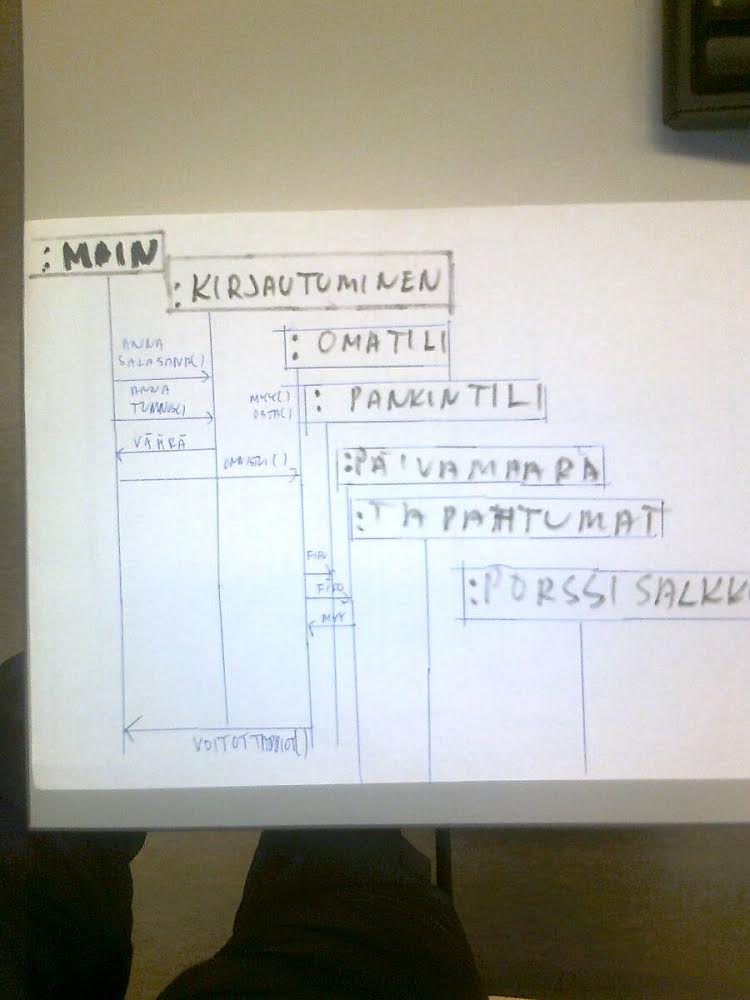 :MAIN
:KIRJAUTUMINEN
: OMATILI
: PANKINTILI
:PÄIVÄMÄÄRÄ
:TAPAHTUMAT
:PÖRSSISALKK
ANNA
SALASANA()
ANNA
TUNNUS()
VÄÄRÄ
MYY()
OSTA()
FIFO
FIFO
MYY
VOITOTTAPPIOT()